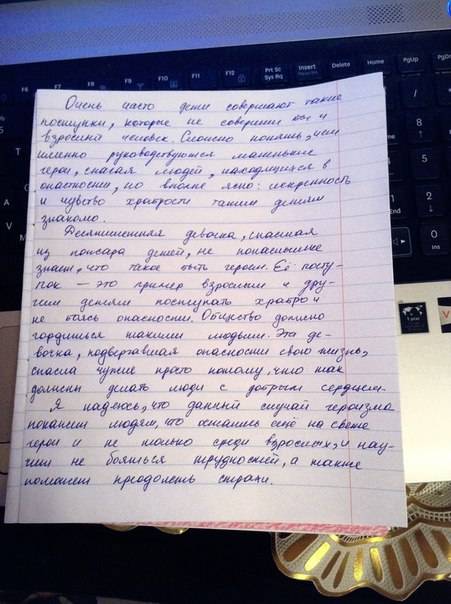 Prt Sc
Sys Rq
Insert
Delete
Home
PgUp
PgDn
F7
F8
F9
F10
F11
F12
Очень часто дети совершают такие
поступки, которые не совершил бы и
взрослый человек. Сложно понять, чем
именно руководствуются маленькие
герои, спасая людей, находящихся в
опасности, но вполне ясно: искренность
и чувство храбрости таким детям
знакомо.
Десятилетняя девочка, спасшая
из пожара детей, не понаслышке
знает, что такое быть героем. Её посту-
пок — это пример взрослым и дру-
гим детям поступать храбро и
не боясь опасности. Общество должно
гордиться такими людьми. Эта де-
вочка, подвергавшая опасности свою жизнь,
спасла чужие просто потому, что так
должны делать люди с добрым сердцем.
Я надеюсь, что данный случай героизма
покажет людям, что остались ещё на свете
герои и не только среди взрослых, и нау-
чит не бояться трудностей, а также
поможет преодолеть страхи.